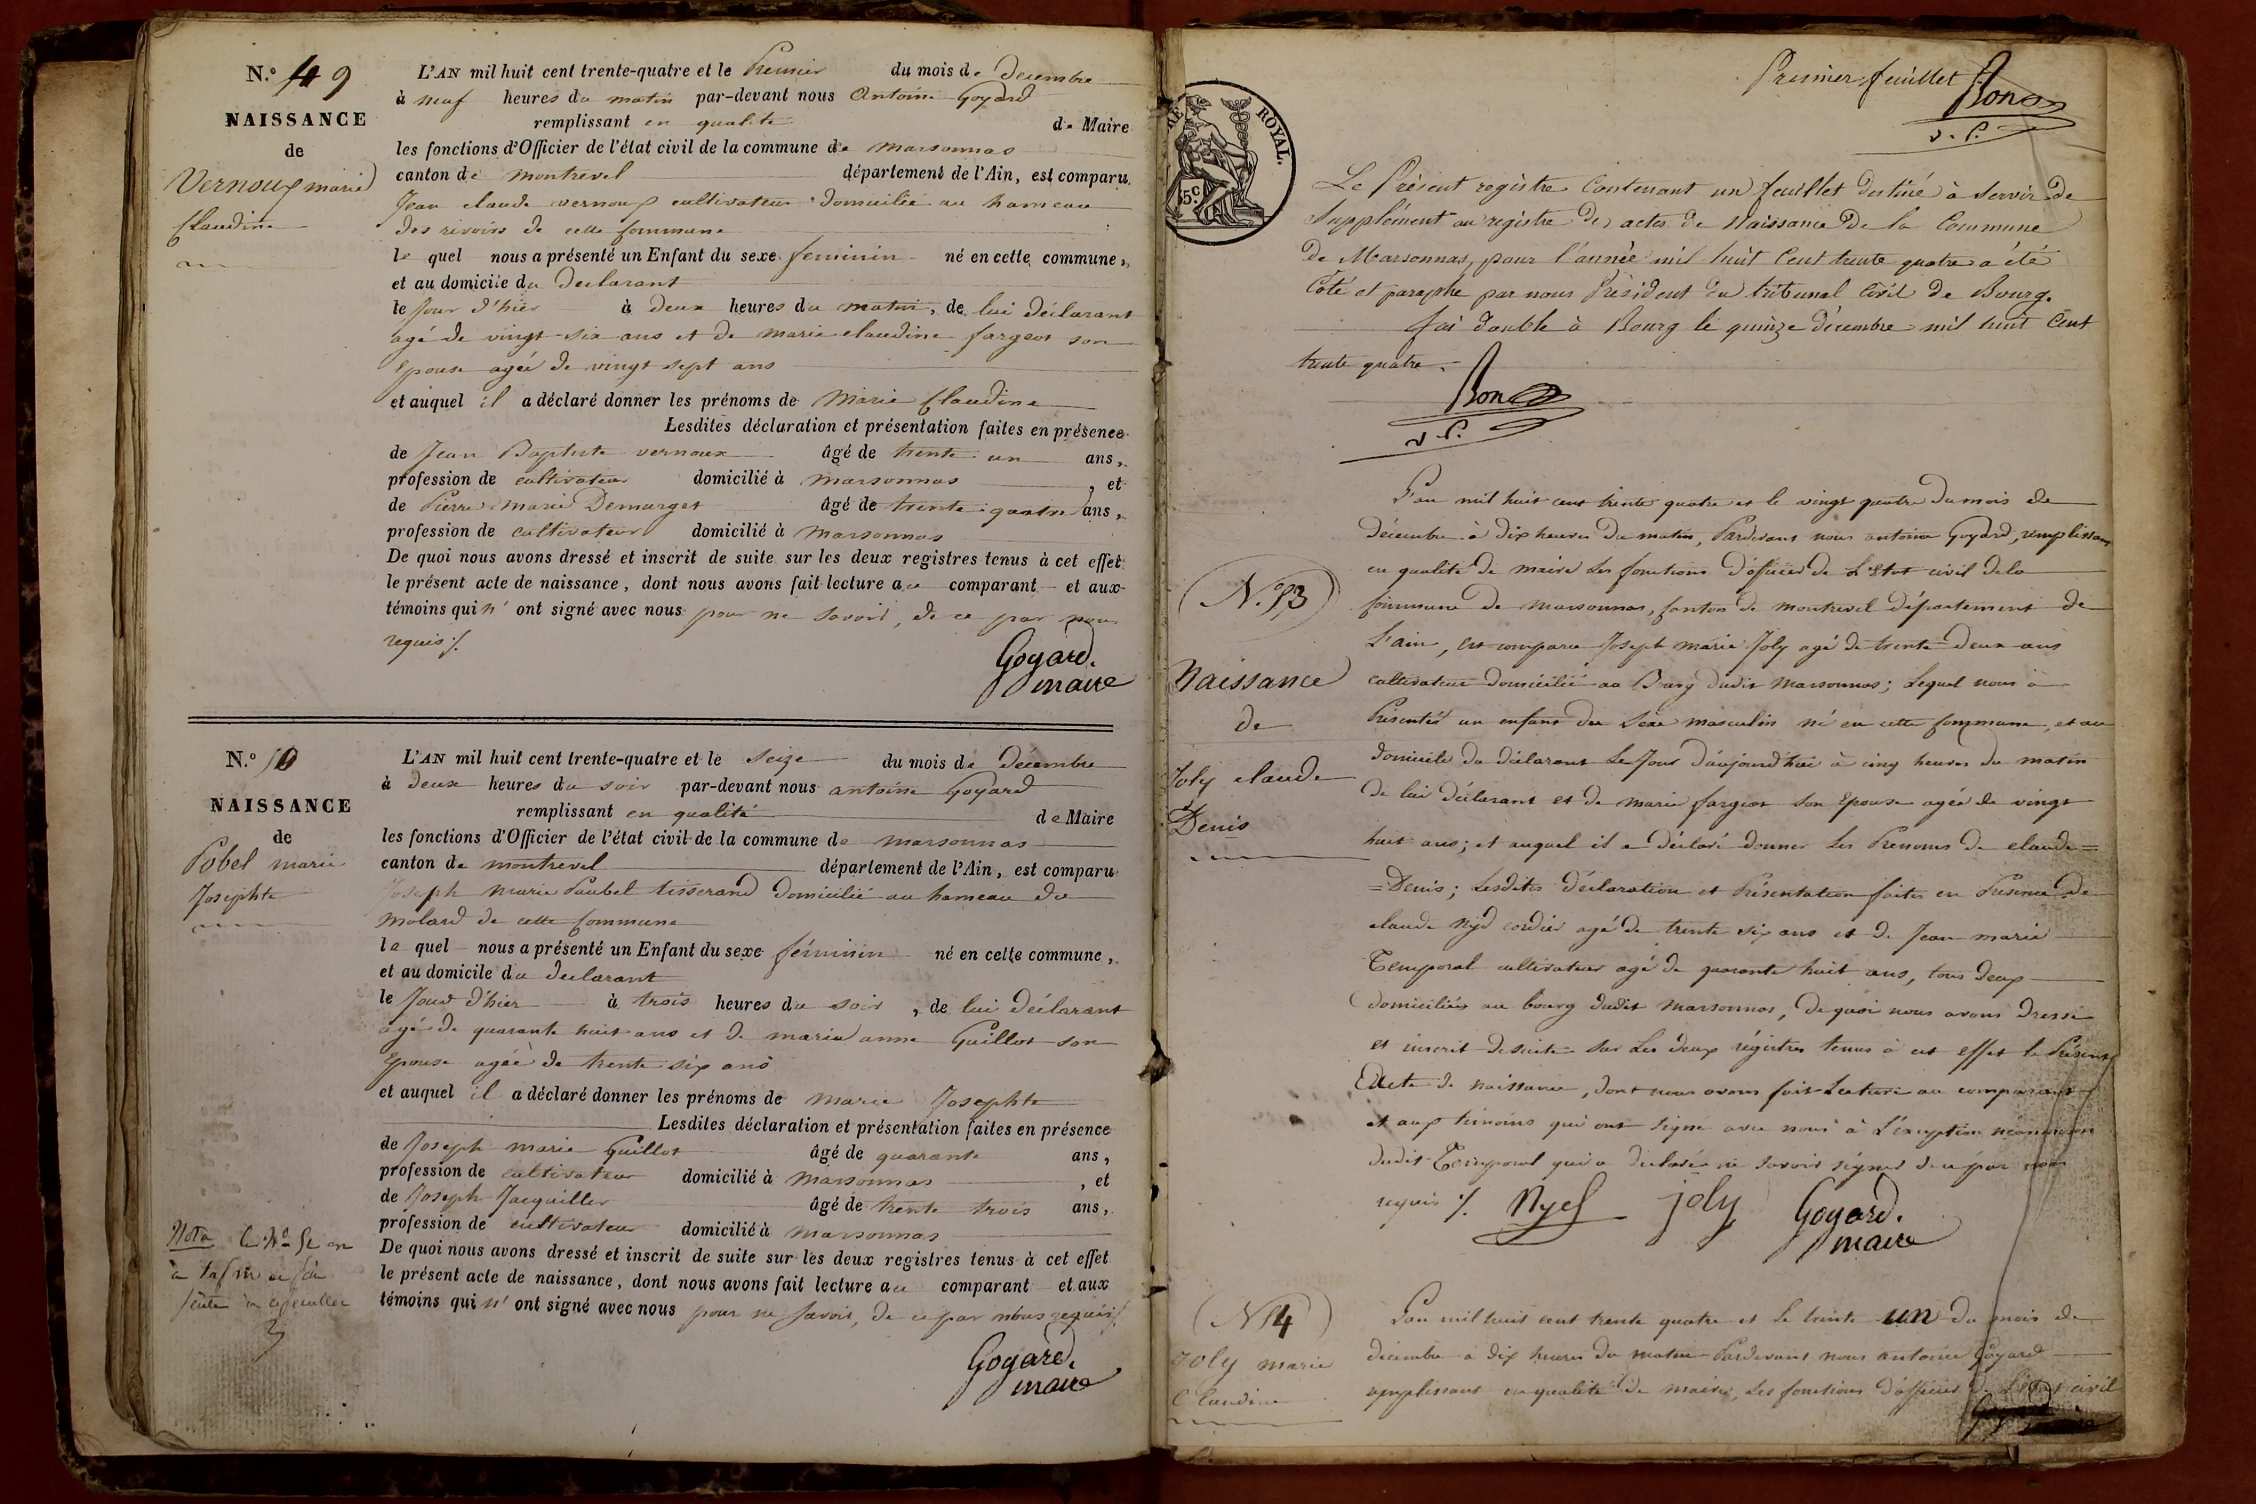 N.º 49
NAISSANCE
de
Vernoux marie
Claudine
L'AN mil huit cent trente-quatre et le Premier du mois de Decembre
à neuf heures du matin par-devant nous Antoine Goyard
remplissant en qualité de Maire
les fonctions d'Officier de l'état civil de la commune de marsonnas
canton de montrevel département de l'Ain, est comparu
Jean claude vernoux cultivateur domicilié au hameau
des rivoirs de cette Commune
le quel nous a présenté un Enfant du sexe feminin né en cette commune,
et au domicile du Declarant
le jour d'hier à deux heures du matin, de lui déclarant
agé de vingt-six ans et de marie claudine fargeot son
Epouse agée de vingt sept ans
et auquel il a déclaré donner les prénoms de Marie Claudine
Lesdites déclaration et présentation faites en présence
de Jean Baptiste vernoux âgé de trente un ans,
profession de cultivateur domicilié à marsonnas, et
de Pierre Marie Demurget âgé de trente quatre ans,
profession de cultivateur domicilié à marsonnas
De quoi nous avons dressé et inscrit de suite sur les deux registres tenus à cet effet
le présent acte de naissance, dont nous avons fait lecture au comparant et aux
témoins qui n'ont signé avec nous pour ne savoir, de ce par nous
requis ⁒
Goyard.
maire
N.º 50
NAISSANCE
de
Pobel marie
Josephte
L'AN mil huit cent trente-quatre et le seize du mois de Décembre
à deux heures du soir par-devant nous antoine Goyard
remplissant en qualité de Maire
les fonctions d'Officier de l'état civil de la commune de marsonnas
canton de montrevel département de l'Ain, est comparu
Joseph Marie Paubel tisserand domicilié au hameau du
molard de cette Commune
le quel nous a présenté un Enfant du sexe féminin né en cette commune,
et au domicile du declarant
le Jour d'hier à trois heures du soir, de lui déclarant
agé de quarante huit ans et de marie anne Guillot son
Epouse agée de trente six ans
et auquel il a déclaré donner les prénoms de marie Josephte
Lesdites déclaration et présentation faites en présence
de Joseph marie Guillot âgé de quarante ans,
profession de cultivateur domicilié à marsonnas, et
de Joseph Jacquiller âgé de trente trois ans,
profession de cultivateur domicilié à marsonnas
De quoi nous avons dressé et inscrit de suite sur les deux registres tenus à cet effet
le présent acte de naissance, dont nous avons fait lecture au comparant et aux
témoins qui n'ont signé avec nous pour ne savoir, de ce par nous requis ⁒
Goyard.
maire
Nota
Premier feuillet Bon
v. P.
ROYAL.
5c.
Le Présent registre Contenant un feuillet destiné à Servir de
Supplément au registre des actes de Naissance de la Commune
de Marsonnas, pour l'année mil huit Cent trente quatre a été
Coté et paraphé par nous Président du tribunal Civil de Bourg.
fai double à Bourg le quinze décembre mil huit Cent
trente quatre.
Bon
v. P.
N. 53
Naissance
de
Joly claude
Denis
L'an mil huit cent trente quatre et le vingt quatre du mois de
décembre à dix heures du matin, Pardevant nous antoine Goyard, remplissant
en qualité de maire Les fonctions d'officier de L'Etat civil de la
Commune de marsonnas, Canton de montrevel département de
L'ain, est comparu Joseph marie Joly agé de trente deux ans
cultivateur domicilié au Bourg dudit marsonnas; Lequel nous a
Présenté un enfant du Sexe masculin né en cette Commune, et au
domicile du déclarant Le Jour d'aujourd'hui à cinq heures du matin
de lui déclarant et de marie fargeot Son Epouse agée de vingt
huit ans; et auquel il a déclaré donner Les Prenoms de claude=
=Denis; Lesdites déclaration et Présentation faites en Présence de
claude Nyd cordier agé de trente six ans et de Jean marie
Temporal cultivateur agé de quarante huit ans, tous deux
domiciliés au bourg dudit marsonnas, De quoi nous avons dressé
et inscrit de suite sur Les deux régistres tenus à cet effet le Présent
Acte de naissance, dont nous avons fait Lecture au comparant
et aux temoins qui ont signé avec nous à L'exception
dudit Temporal qui a declaré ne savoir signer de ce par nous
requis ⁒ Nyd joly Goyard.
maire
N 54
Joly marie
Claudine
L'an mil huit cent trente quatre et Le trente un du mois de
décembre à dix heures du matin Pardevant nous antoine Goyard
remplissant en qualité de maire, Les fonctions d'officier de L'Etat civil